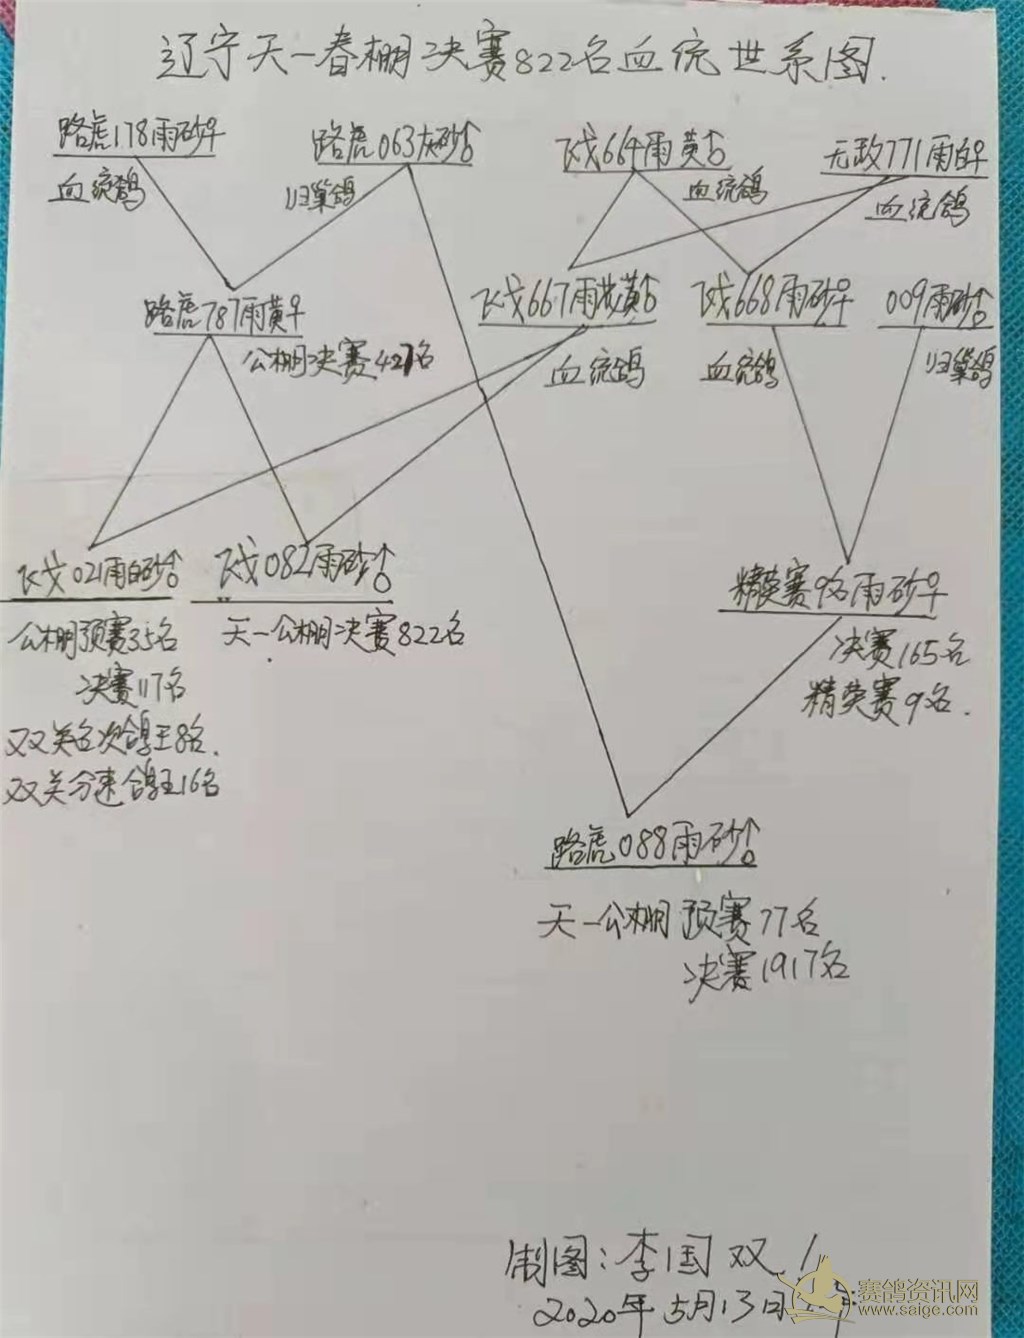 辽宁天一春棚决赛822名血统世系图.
路虎178雨砂♀
路虎063灰砂♂
飞戈664雨黄♂
无政771雨白♀
血统鸽
归巢鸽
血统鸽
血统鸽
路虎787雨黄♀
飞戈667雨花黄♂
飞戈668雨砂♀
009雨砂♂
公棚决赛427名
血统鸽
血统鸽
归巢鸽
飞戈021雨白砂♂
飞戈082雨砂♂
精英赛9名雨砂♀
公棚预赛35名
天一公棚决赛822名
决赛165名
决赛117名
精英赛9名.
双关名次鸽王8名.
双关分速鸽王16名
路虎088雨砂♂
天一公棚预赛77名
决赛1917名
制图:李国双.
2020年5月13日
赛鸽资讯网
www.saige.com